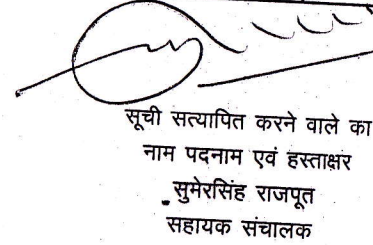 सूची सत्यापित करने वाले का
नाम पदनाम एवं हस्ताक्षर
सुमेरसिंह राजपूत
सहायक संचालक